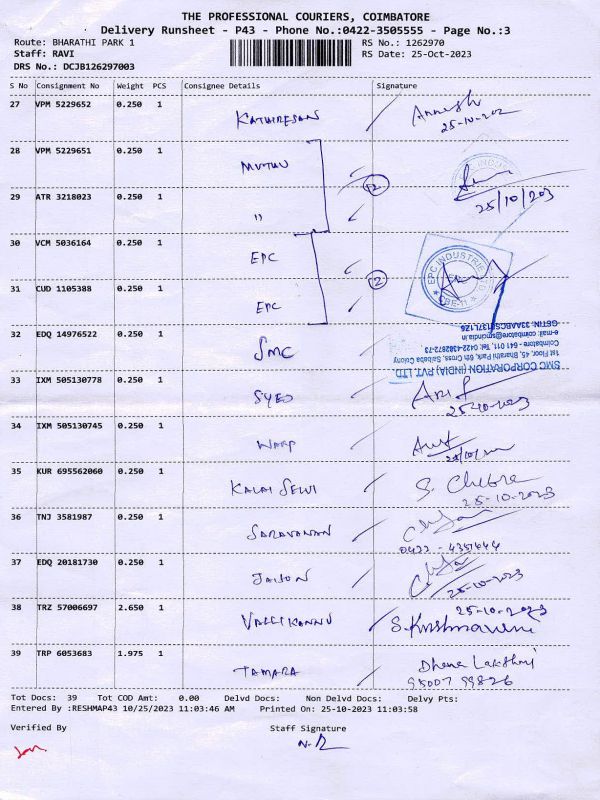 THE PROFESSIONAL COURIERS, COIMBATORE
Delivery Runsheet - P43 - Phone No.:0422-3505555 - Page No.:3
Route: BHARATHI PARK 1 RS No.: 1262970
Staff: RAVI RS Date: 25-Oct-2023
DRS No.: DCJB126297003
S No Consignment No Weight PCS Consignee Details Signature
27 VPM 5229652 0.250 1 KATHIRESAN
25-10-202
28 VPM 5229651 0.250 1 MUTHU
29 ATR 3218023 0.250 1 " 12 25/10/203
30 VCM 5036164 0.250 1 EPC
EPC INDUSTRIE LTD
CBE-11
31 CUD 1105388 0.250 1 EPC 12
32 EDQ 14976522 0.250 1 SMC
SMC CORPORATION (INDIA) PVT. LTD.
1st Floor, 45, Bharathi Park 6th Cross, Saibaba Colony
Coimbatore - 641 011. Tel: 0422-4382872-73
33 IXM 505130778 0.250 1 SYED ARIF
25-10-2023
34 IXM 505130745 0.250 1 WARP
35 KUR 695562060 0.250 1 KALAI SELVI S. Chitra
25-10-2023
36 TNJ 3581987 0.250 1 SARAVANAN
0422 - 4351444
37 EDQ 20181730 0.250 1 JAISON
25-10-2023
38 TRZ 57006697 2.650 1 VALLIKANNU 25-10-2023
S.Krishnaveni
39 TRP 6053683 1.975 1 TAMARA Dhana Lakshmi
95007 99826
Tot Docs: 39 Tot COD Amt: 0.00 Delvd Docs: Non Delvd Docs: Delvy Pts:
Entered By :RESHMAP43 10/25/2023 11:03:46 AM Printed On: 25-10-2023 11:03:58
Verified By Staff Signature